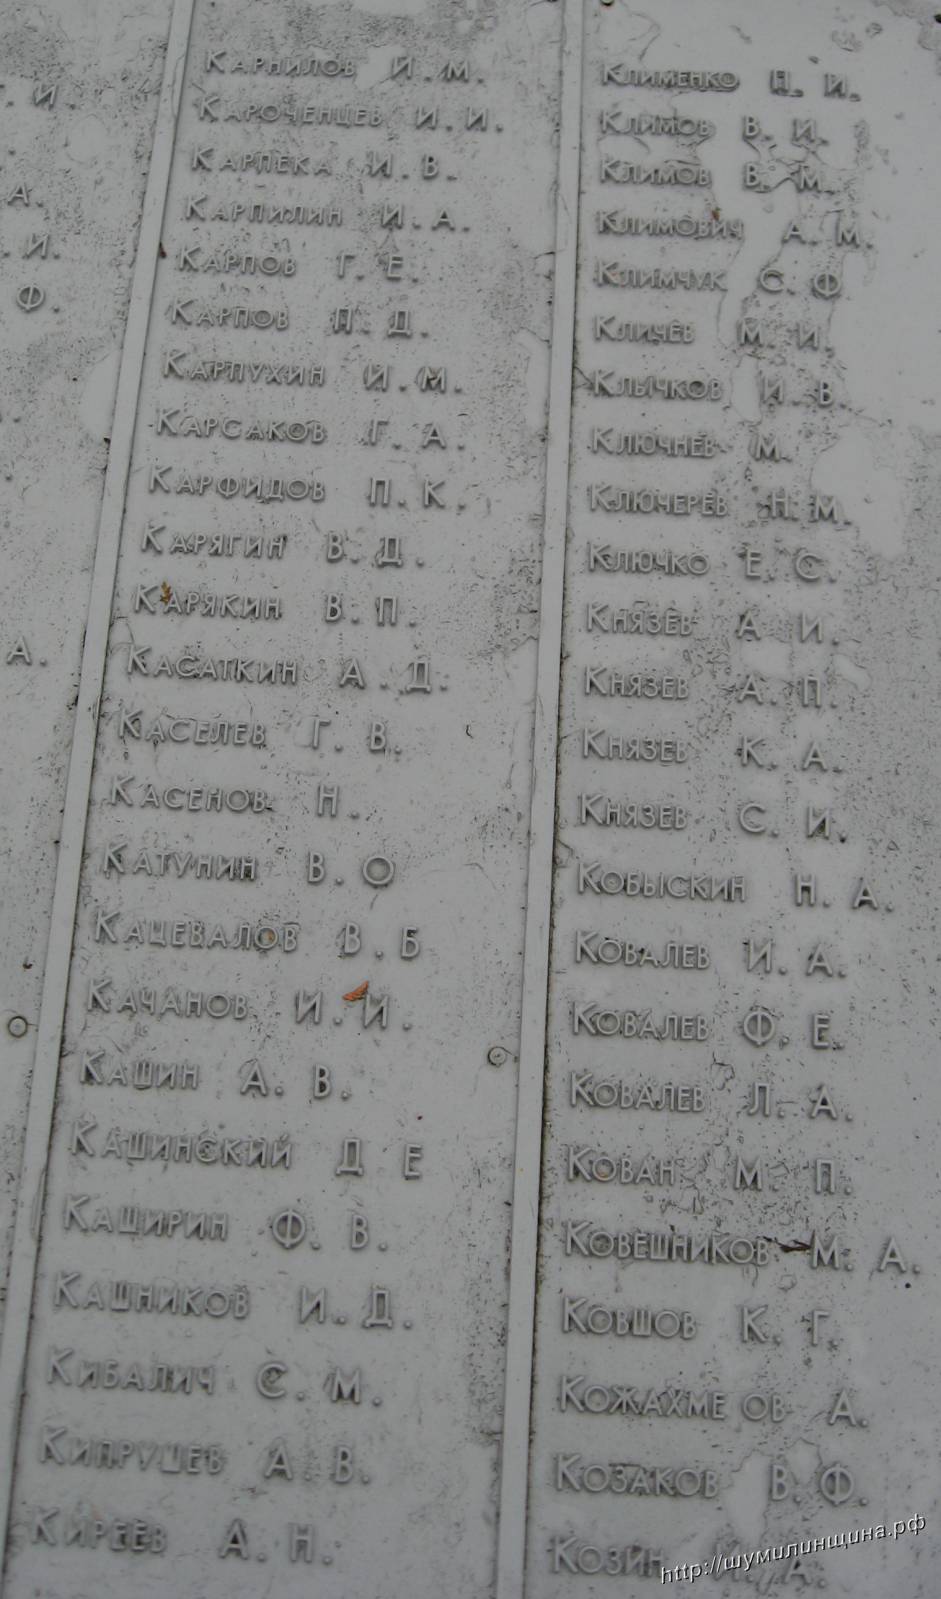 . И
А.
. И.
Ф.
А.
Карнилов И.М.
Кароченцев И.И.
Карпека И.В.
Карпилин И.А.
Карпов Г.Е.
Карпов П.Д.
Карпухин И.М.
Карсаков Г.А.
Карфидов П.К.
Карягин В.Д.
Карякин В.П.
Касаткин А.Д.
Каселев Г.В.
Касенов Н.
Катунин В.О
Кацевалов В.Б
Качанов И.И.
Кашин А.В.
Кашинский Д Е
Каширин Ф.В.
Кашников И.Д.
Кибалич С.М.
Кипрушев А.В.
Киреев А.Н.
Клименко Н.И.
Климов В.И.
Климов В.М.
Климович А.М.
Климчук С.Ф
Кличев М.И.
Клычков И.В.
Ключнев М.
Ключерев Н.М.
Ключко Е.С.
Князев А И.
Князев А.П.
Князев К.А.
Князев С.И.
Кобыскин Н.А.
Ковалев И.А.
Ковалев Ф.Е.
Ковалев Л.А.
Кован М.П.
Ковешников М.А.
Ковшов К.Г.
Кожахме ов А.
Козаков В.Ф.
Козин И.А.
http://шумилинщина.рф